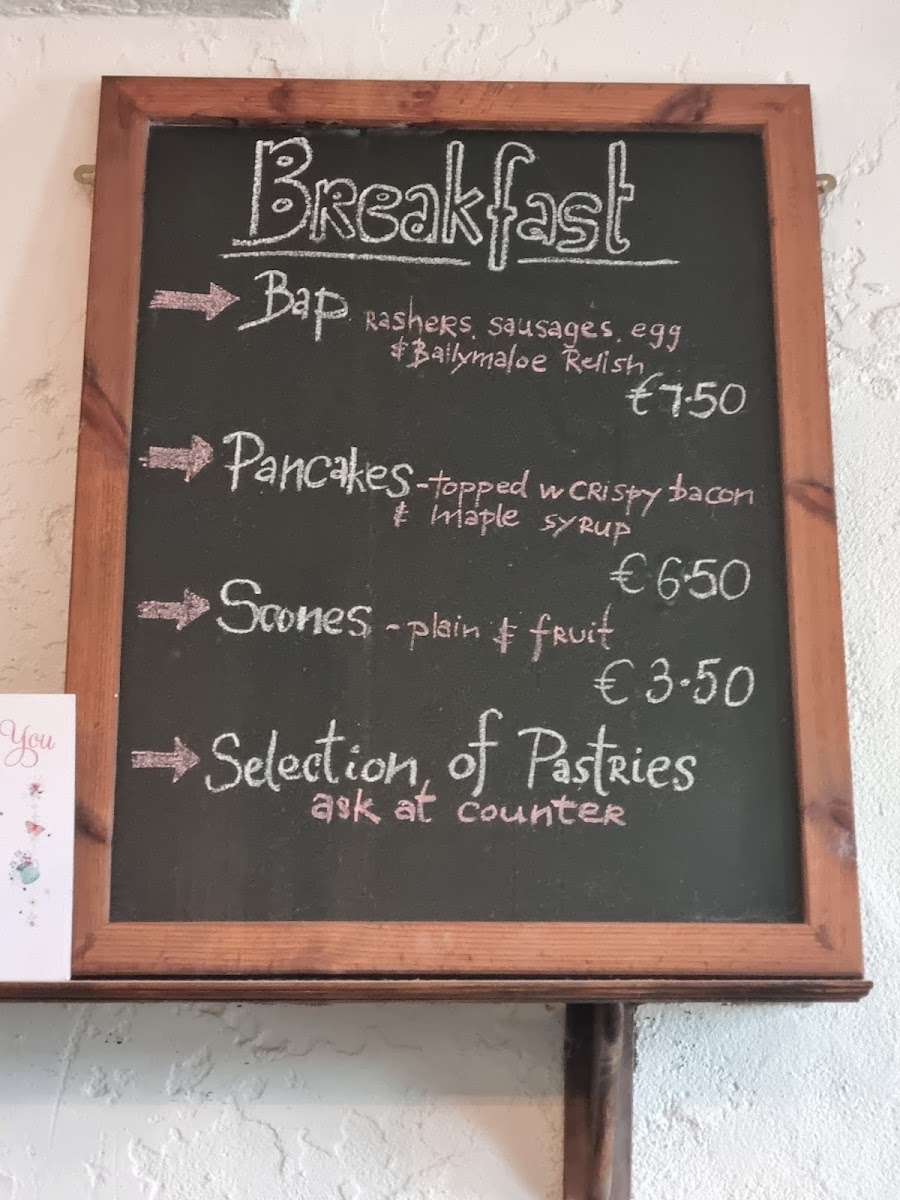 Breakfast
Bap Rashers, sausages, egg
& Ballymaloe Relish
€7.50
Pancakes - topped w crispy bacon
& maple syrup
€6.50
Scones - plain & fruit
€3.50
Selection of Pastries
ask at counter
You